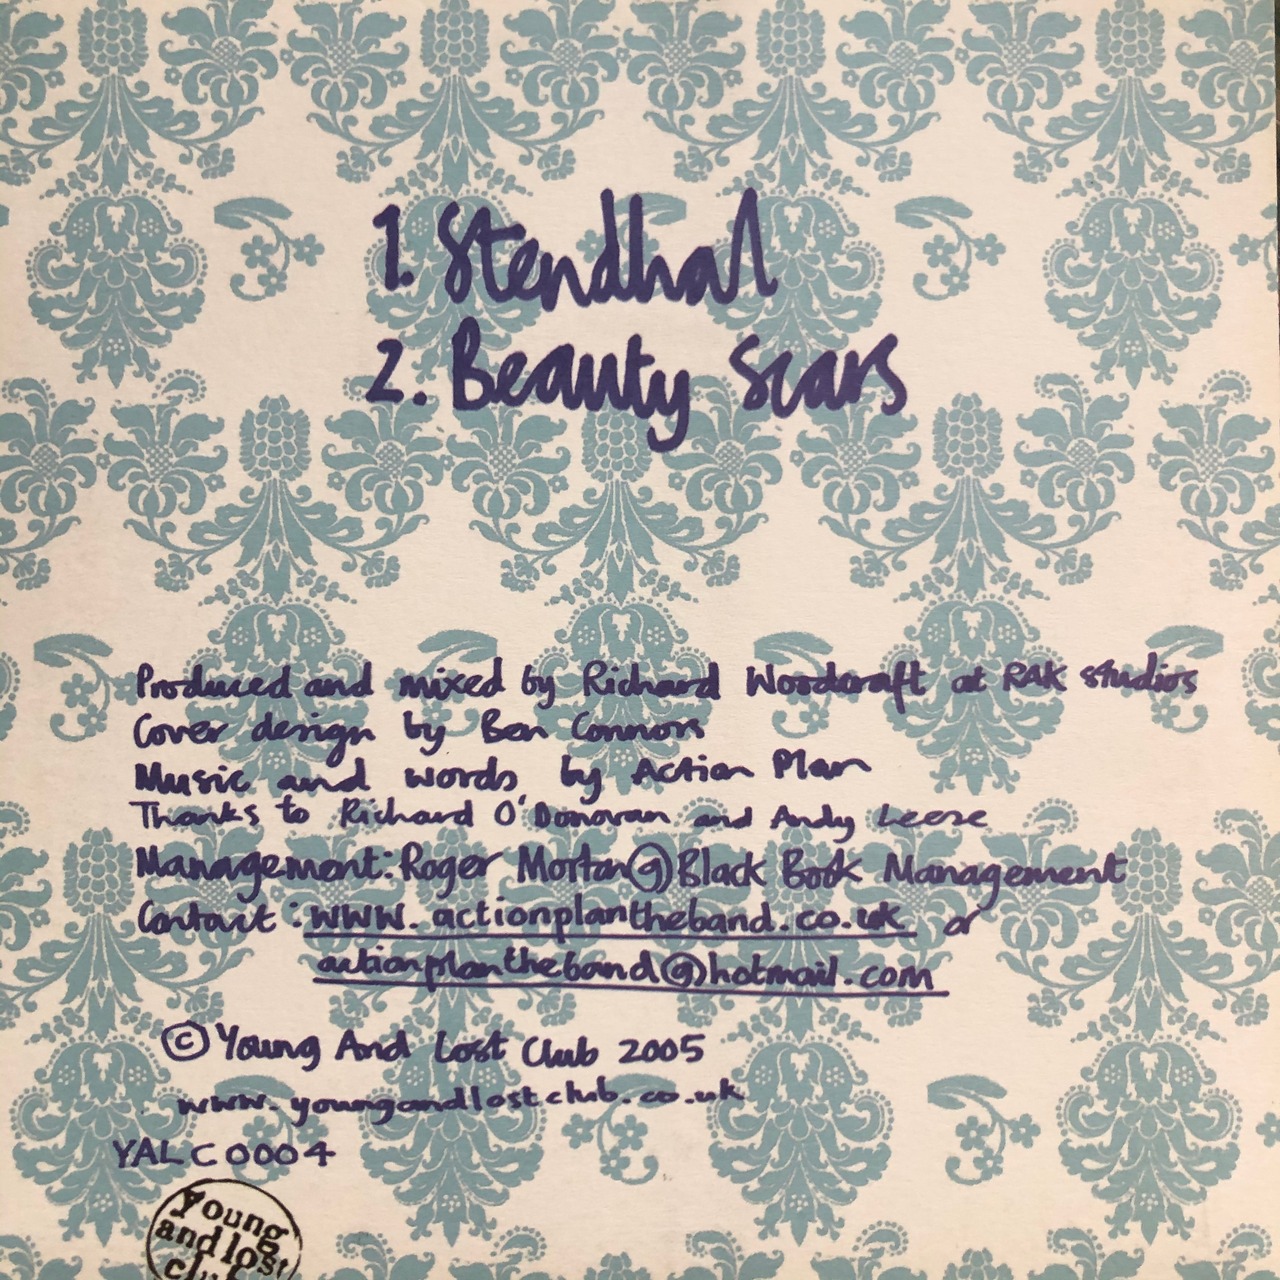 1. Stendhal
2. Beauty Scars
Produced and mixed by Richard Woodcraft at RAK studios
Cover design by Ben Connors
Music and words by Action Plan
Thanks to Richard O'Donovan and Andy Leese
Management: Roger Morton@Black Book Management
Contact: www.actionplantheband.co.uk or
actionplantheband@hotmail.com
© Young And Lost Club 2005
www.youngandlostclub.co.uk
YALC0004
young
and lost
club